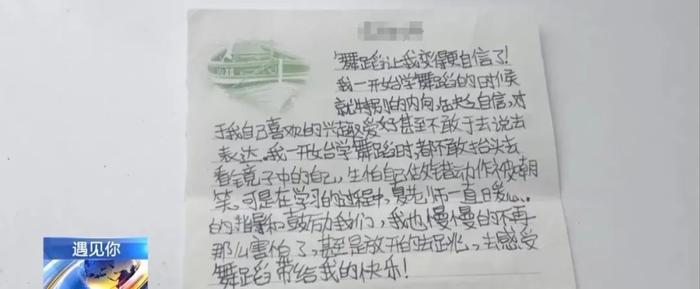 舞蹈让我变得更自信了!
我一开始学舞蹈的时候
就特别的内向,也缺乏自信,对
于我自己喜欢的兴趣爱好甚至不敢于去说去
表达。我一开始学舞蹈时,都不敢抬头去
看镜子中的自己,生怕自己做错动作被嘲
笑。可是在学习的过程中,夏老师一直耐心
的指导和鼓励我们,我也慢慢的不再
那么害怕了,甚至是放开的去跳,去感受
舞蹈带给我的快乐!
遇见你